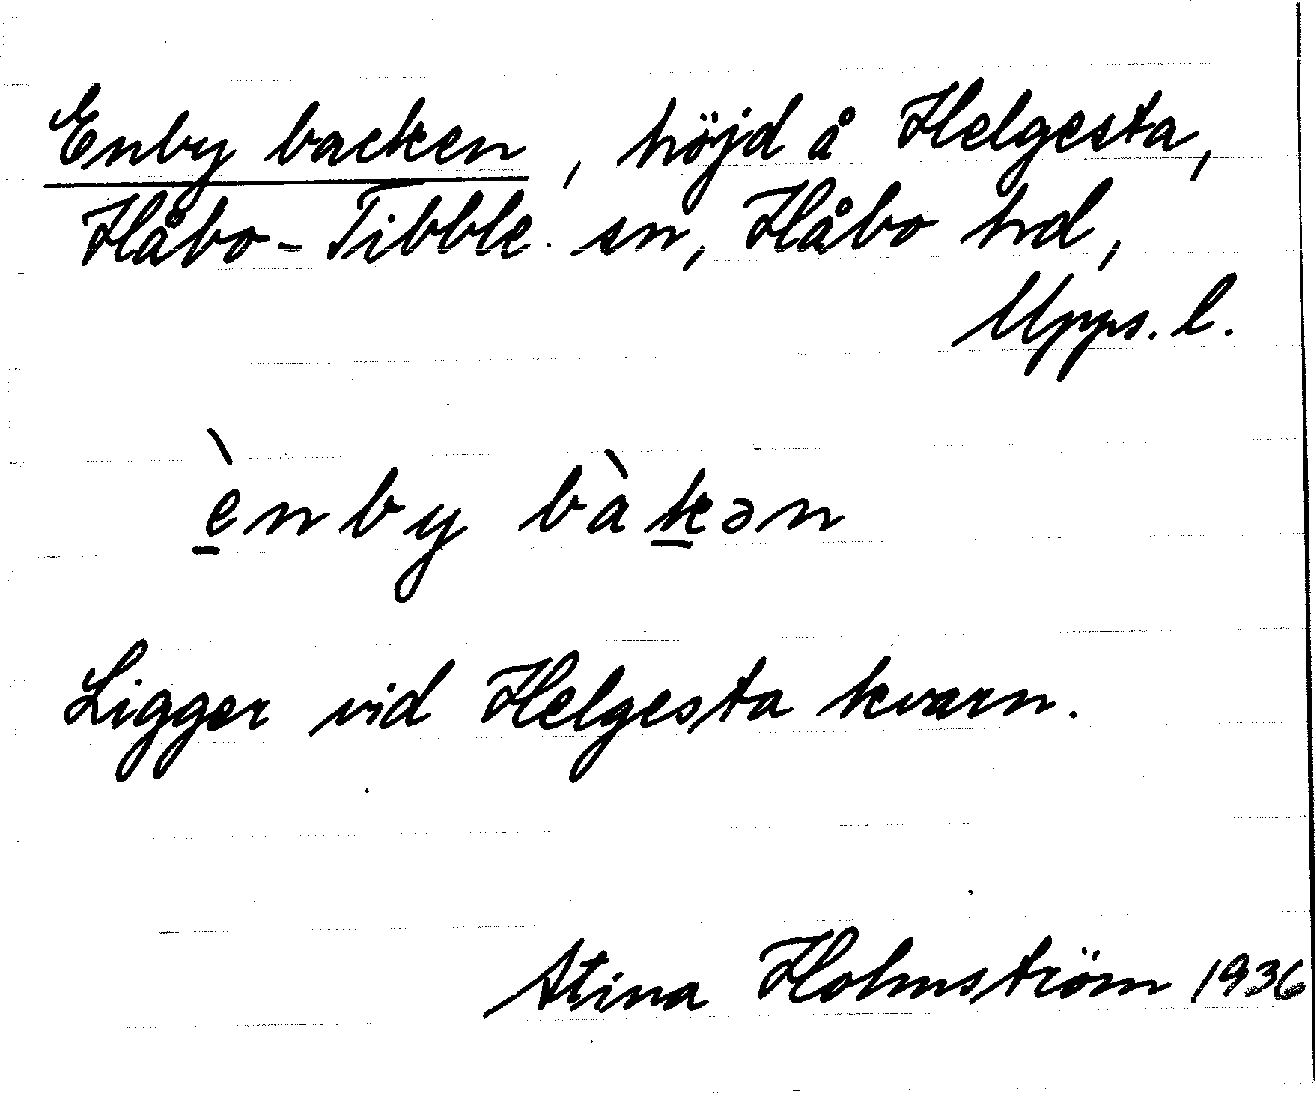 Enby backen, höjd å Helgesta,
Håbo-Tibble sn, Håbo hd,
Upps. l.
ènby bàkən
Ligger vid Helgesta kvarn.
Stina Holmström 1936